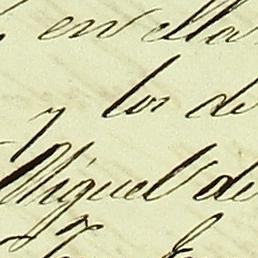 en ella
y los de
Miguel de